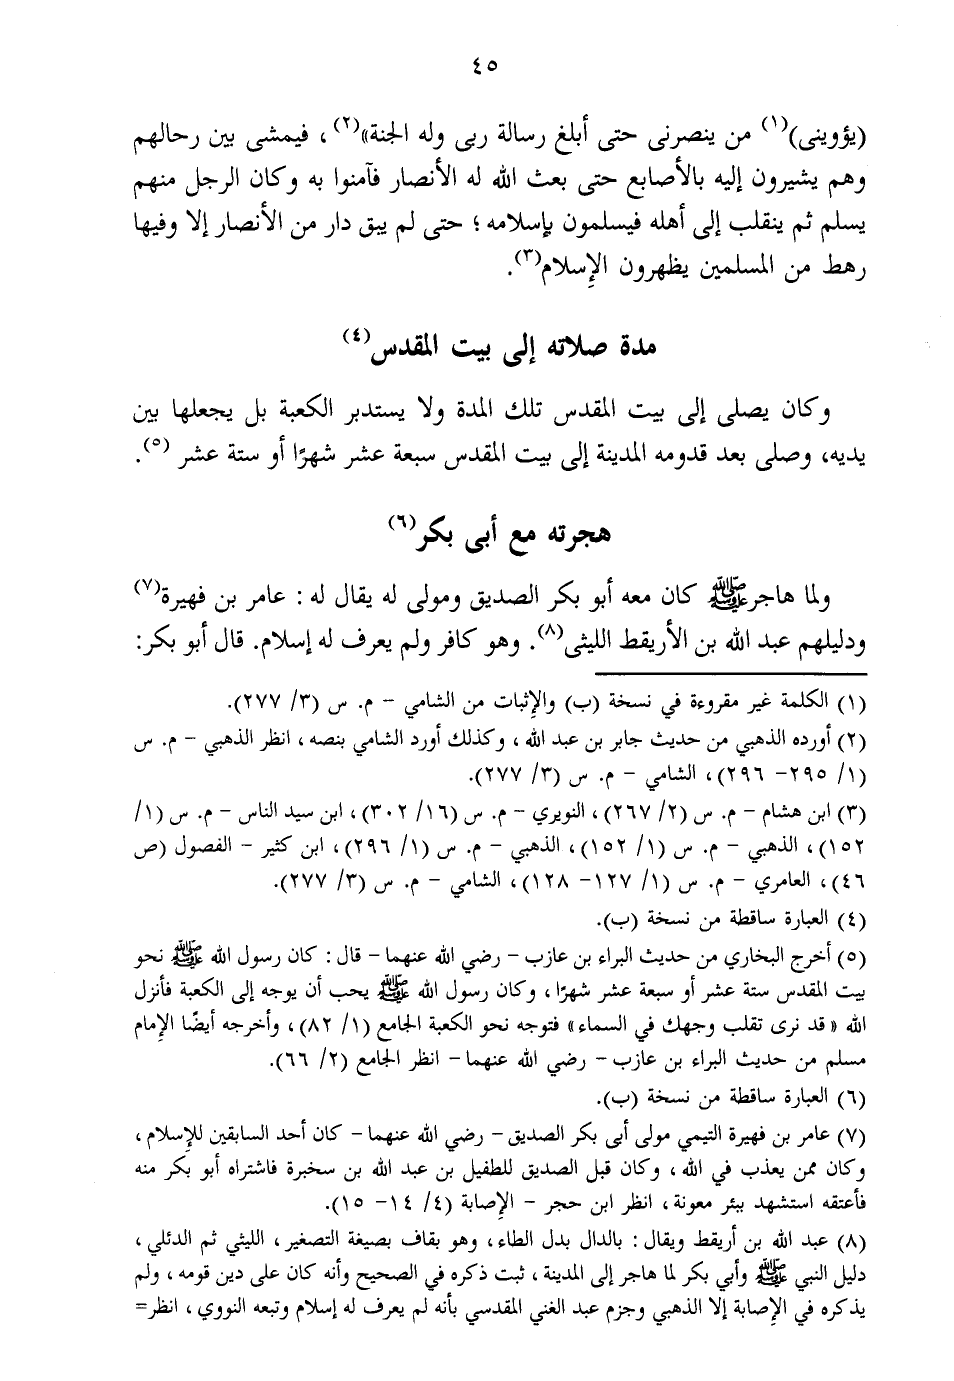 ٤٥
(يؤوينى)(١) من ينصرنى حتى أبلغ رسالة ربى وله الجنة»(٢) ، فيمشى بين رحالهم
وهم يشيرون إليه بالأصابع حتى بعث الله له الأنصار فآمنوا به وكان الرجل منهم
يسلم ثم ينقلب إلى أهله فيسلمون بإسلامه ؛ حتى لم يبق دار من الأنصار إلا وفيها
رهط من المسلمين يظهرون الإسلام(٣).
مدة صلاته إلى بيت المقدس(٤)
وكان يصلى إلى بيت المقدس تلك المدة ولا يستدبر الكعبة بل يجعلها بين
يديه، وصلى بعد قدومه المدينة إلى بيت المقدس سبعة عشر شهرًا أو ستة عشر (٥).
هجرته مع أبى بكر(٦)
ولما هاجر ﷺ كان معه أبو بكر الصديق ومولى له يقال له : عامر بن فهيرة(٧)
ودليلهم عبد الله بن الأريقط الليثى(٨). وهو كافر ولم يعرف له إسلام. قال أبو بكر:
(١) الكلمة غير مقروءة في نسخة (ب) والإثبات من الشامي - م. س (٣/ ٢٧٧).
(٢) أورده الذهبي من حديث جابر بن عبد الله ، وكذلك أورد الشامي بنصه ، انظر الذهبي - م. س
(١/ ٢٩٥- ٢٩٦) ، الشامي - م. س (٣/ ٢٧٧).
(٣) ابن هشام - م. س (٢/ ٢٦٧) ، النويري - م. س (١٦/ ٣٠٢) ، ابن سيد الناس - م. س (١/
١٥٢) ، الذهبي - م. س (١/ ١٥٢) ، الذهبي - م. س (١/ ٢٩٦) ، ابن كثير - الفصول (ص
٤٦) ، العامري - م. س (١/ ١٢٧- ١٢٨) ، الشامي - م. س (٣/ ٢٧٧).
(٤) العبارة ساقطة من نسخة (ب).
(٥) أخرج البخاري من حديث البراء بن عازب - رضي الله عنهما - قال : كان رسول الله ﷺ نحو
بيت المقدس ستة عشر أو سبعة عشر شهرًا ، وكان رسول الله ﷺ يحب أن يوجه إلى الكعبة فأنزل
الله « قد نرى تقلب وجهك في السماء » فتوجه نحو الكعبة الجامع (١/ ٨٢) ، وأخرجه أيضًا الإمام
مسلم من حديث البراء بن عازب - رضي الله عنهما - انظر الجامع (٢/ ٦٦).
(٦) العبارة ساقطة من نسخة (ب).
(٧) عامر بن فهيرة التيمي مولى أبى بكر الصديق - رضي الله عنهما - كان أحد السابقين للإسلام ،
وكان ممن يعذب في الله ، وكان قبل الصديق للطفيل بن عبد الله بن سخبرة فاشتراه أبو بكر منه
فأعتقه استشهد ببئر معونة ، انظر ابن حجر - الإصابة (٤/ ١٤- ١٥).
(٨) عبد الله بن أريقط ويقال : بالدال بدل الطاء ، وهو بقاف بصيغة التصغير ، الليثي ثم الدئلي ،
دليل النبي ﷺ وأبي بكر لما هاجر إلى المدينة ، ثبت ذكره في الصحيح وأنه كان على دين قومه ، ولم
يذكره في الإصابة إلا الذهبي وجزم عبد الغني المقدسي بأنه لم يعرف له إسلام وتبعه النووي ، انظر=